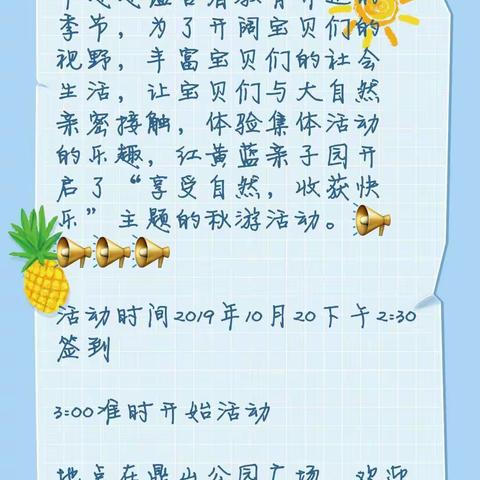 季节，为了开阔宝贝们的
视野，丰富宝贝们的社会
生活，让宝贝们与大自然
亲密接触，体验集体活动
的乐趣，红黄蓝亲子园开
启了“享受自然，收获快
乐”主题的秋游活动。
活动时间2019年10月20下午2:30
签到
3:00准时开始活动
地点在鼎山公园广场，欢迎